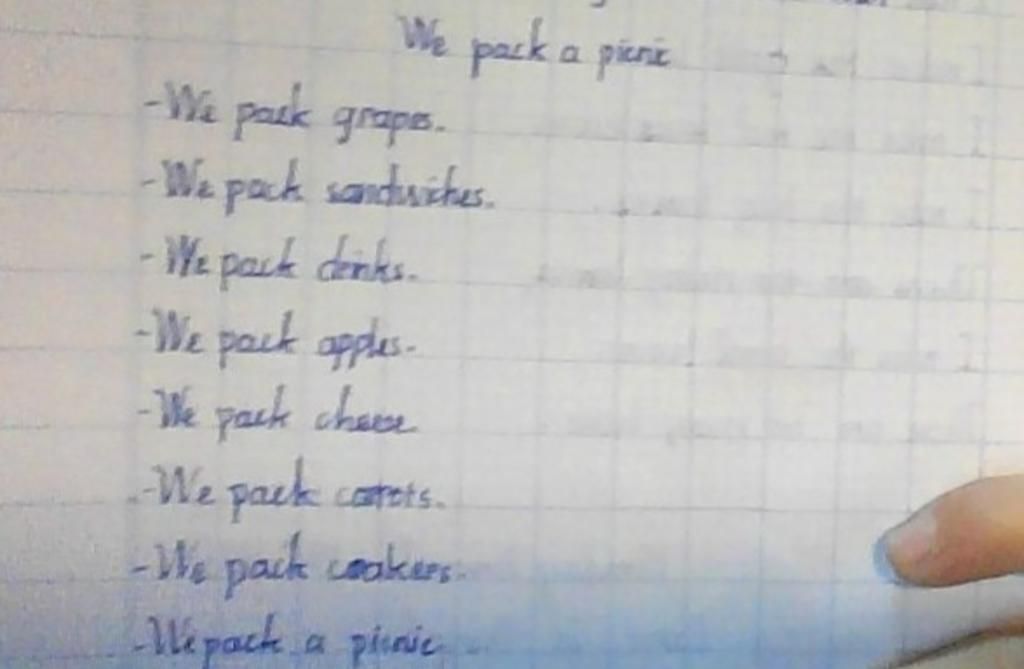 We pack a picnic
- We pack grapes.
- We pack sandwiches.
- We pack drinks.
- We pack apples.
- We pack cheese
- We pack carrots.
- We pack
- We pack a picnic